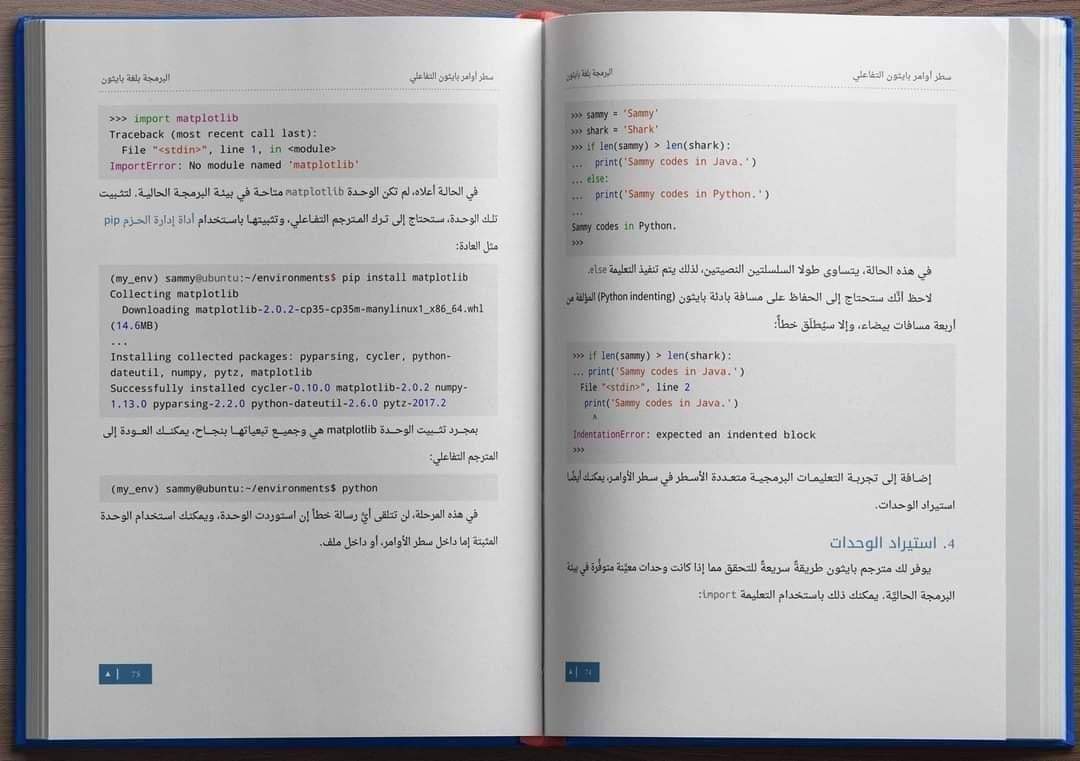 سطر أوامر بايثون التفاعلي
البرمجة بلغة بايثون
>>> sammy = 'Sammy'
>>> shark = 'Shark'
>>> if len(sammy) > len(shark):
... print('Sammy codes in Java.')
... else:
... print('Sammy codes in Python.')
...
Sammy codes in Python.
>>>
في هذه الحالة، يتساوى طولا السلسلتين النصيتين، لذلك يتم تنفيذ التعليمة else.
لاحظ أنَّك ستحتاج إلى الحفاظ على مسافة بادئة بايثون (Python indenting) المؤلفة من
أربعة مسافات بيضاء، وإلا سيُطلَق خطأٌ:
>>> if len(sammy) > len(shark):
... print('Sammy codes in Java.')
File "<stdin>", line 2
print('Sammy codes in Java.')
^
IndentationError: expected an indented block
>>>
إضافة إلى تجربة التعليمات البرمجية متعددة الأسطر في سطر الأوامر، يمكنك أيضًا
استيراد الوحدات.
4. استيراد الوحدات
يوفر لك مترجم بايثون طريقةً سريعةً للتحقق مما إذا كانت وحدات معيَّنة متوفِّرة في بيئة
البرمجة الحاليَّة. يمكنك ذلك باستخدام التعليمة import:
▲ | 74
سطر أوامر بايثون التفاعلي
البرمجة بلغة بايثون
>>> import matplotlib
Traceback (most recent call last):
File "<stdin>", line 1, in <module>
ImportError: No module named 'matplotlib'
في الحالة أعلاه، لم تكن الوحدة matplotlib متاحة في بيئة البرمجة الحالية. لتثبيت
تلك الوحدة، ستحتاج إلى ترك المترجم التفاعلي، وتثبيتها باستخدام أداة إدارة الحزم pip
مثل العادة:
(my_env) sammy@ubuntu:~/environments$ pip install matplotlib
Collecting matplotlib
Downloading matplotlib-2.0.2-cp35-cp35m-manylinux1_x86_64.whl
(14.6MB)
...
Installing collected packages: pyparsing, cycler, python-
dateutil, numpy, pytz, matplotlib
Successfully installed cycler-0.10.0 matplotlib-2.0.2 numpy-
1.13.0 pyparsing-2.2.0 python-dateutil-2.6.0 pytz-2017.2
بمجرد تثبيت الوحدة matplotlib هي وجميع تبعياتها بنجاح، يمكنك العودة إلى
المترجم التفاعلي:
(my_env) sammy@ubuntu:~/environments$ python
في هذه المرحلة، لن تتلقى أيَّ رسالة خطأ إن استوردت الوحدة، ويمكنك استخدام الوحدة
المثبتة إما داخل سطر الأوامر، أو داخل ملف.
▲ | 75